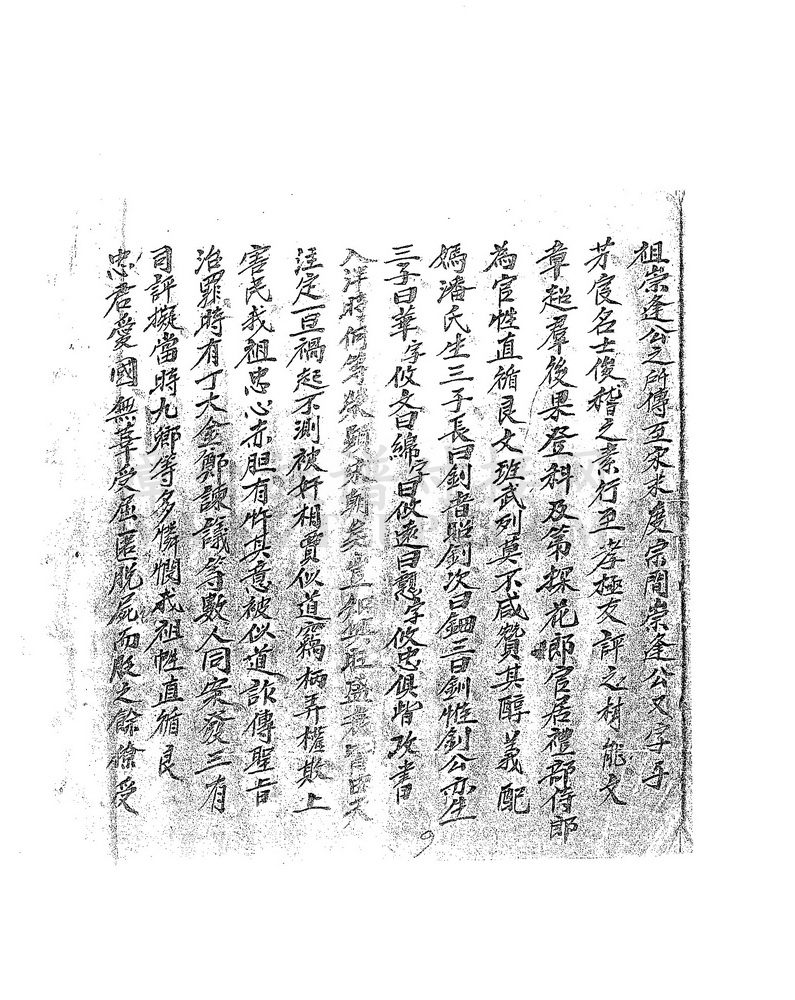 祖崇逢公之所傳至宋末度宗間崇逢公又字子
芳宸名士俊稽之素行至孝極友評之材能文
章超羣後果登科及第探花郎官居禮部侍郎
為官性直循良文班武列莫不咸贊其醇義配
媽潘氏生三子長曰釗者貽釗次曰鈿三曰釧惟釗公亦生
三子曰華字攸文曰綿字曰攸遠曰懇字攸忠俱皆攻書
入洋時何等榮顯宋朝矣豈知興旺盛衰皆由天
注定一旦禍起不測被奸相賈似道竊柄弄權欺上
害民我祖忠心赤胆有忤其意被似道詐傳聖旨
治罪時有丁大全鄭諫議等數人同案發三有
司評擬當時九鄉等多憐憫我祖性直循良
忠君愛國無辜受屈匿脫屍而貶之餘僚受
9